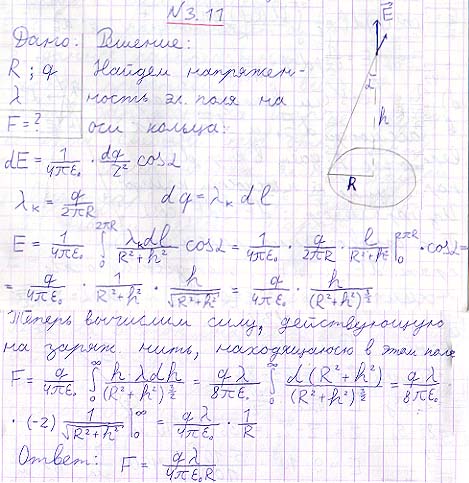 N 3.11
Дано: Решение:
R; q Найдем напряжен-
λ ность эл. поля на
F=? оси кольца:
dE = 1/(4πε₀) · dq/r² cosα
λₖ = q/(2πR) dq = λₖ dl
E = 1/(4πε₀) ∫₀^(2πR) λₖdl/(R²+h²) cosα = 1/(4πε₀) · q/(2πR) · l/(R²+h²) |₀^(2πR) · cosα =
= q/(4πε₀) · 1/(R²+h²) · h/√(R²+h²) = q/(4πε₀) · h/(R²+h²)^(3/2)
Теперь вычислим силу, действующую
на заряж нить, находящаюся в этом поле
F = q/(4πε₀) ∫₀^∞ hλdh/(R²+h²)^(3/2) = qλ/(8πε₀) ∫₀^∞ d(R²+h²)/(R²+h²)^(3/2) = qλ/(8πε₀) ·
· (-2) 1/√(R²+h²) |₀^∞ = qλ/(4πε₀) · 1/R
Ответ: F = qλ/(4πε₀R)
E
α
h
R